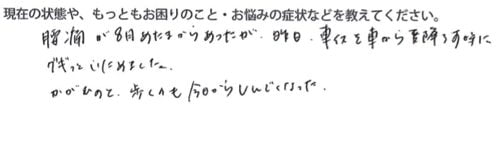 現在の状態や、もっともお困りのこと・お悩みの症状などを教えてください。
腰痛が8月あたまからあったが、昨日、車イスを車から乗降する時に
グギっといためました。
かがむのと、歩くのも今日からしんどくなった。